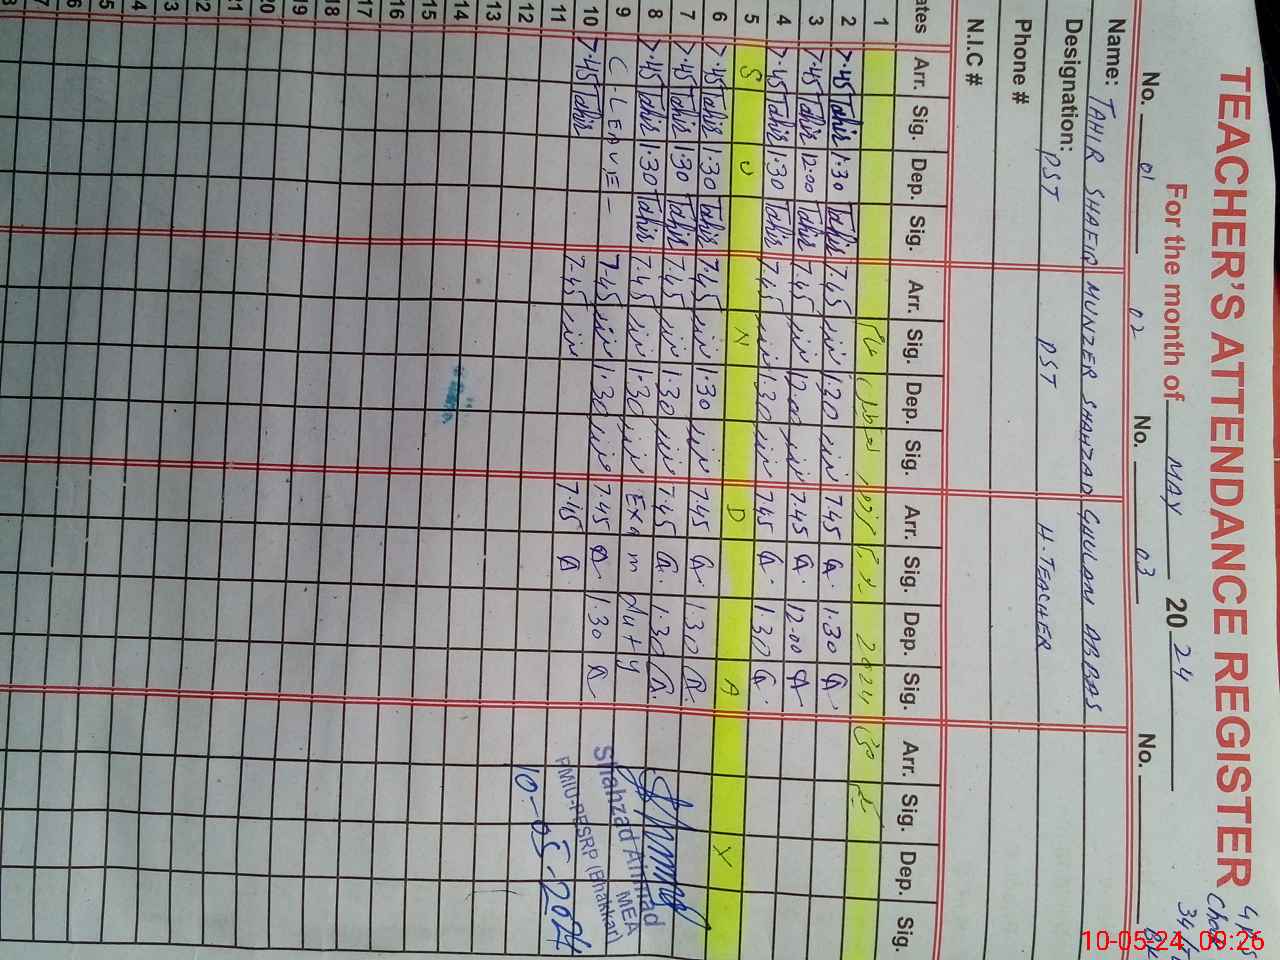 TEACHER'S ATTENDANCE REGISTER
For the month of MAY 2024
No. 01 No. 02 No. 03 No.
Name: TAHIR SHAFIQ MUNZER SHAHZAD GHULAM ABBAS
Designation: PST PST H.TEACHER
Phone #
N.I.C #
ates Arr. Sig. Dep. Sig. Arr. Sig. Dep. Sig. Arr. Sig. Dep. Sig. Arr. Sig. Dep. Sig.
1 2024
2 7.45 Tahir 1.30 Tahir 7.45 1.30 7.45 1.30
3 7.45 Tahir 12.00 Tahir 7.45 12.00 7.45 12.00
4 7.45 Tahir 1.30 Tahir 7.45 1.30 7.45 1.30
5 S U N D A Y
6 7.45 Tahir 1.30 Tahir 7.45 1.30 7.45 1.30
7 7.45 Tahir 1.30 Tahir 7.45 1.30 7.45 1.30
8 7.45 Tahir 1.30 Tahir 7.45 1.30 Exam duty
9 C-LEAVE- 7.45 1.30 7.45 1.30
10 7.45 Tahir 7.45 7.45
11
12
13
14
15
16
17
18
19
20
21
22
3
4
5
6
7
8
Shahzad Ahmad
MEA
PMIU-PESRP (Bhakkar)
10-05-2024
10-05-24 09:26